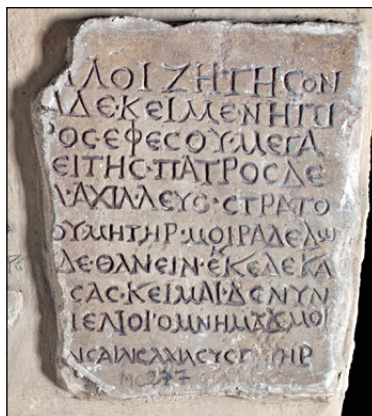 ΛΛΟΙΖΗΤΗϹΟΝ
ΑΔΕΚΕΙΜΕΝΗΓΙ
ΟϹΕΦΕϹΟΥ·ΜΕΓΑ
ΕΙΤΗϹ·ΠΑΤΡΟϹΔΕ
Λ·ΑΧΙΛ·ΛΕΥϹ·ϹΤΡΑΤΟ
ΟΥΜΗΤΗΡ·ΜΟΙΡΑΔΕΔω
ΔΕΘΑΝΕΙΝ·ΕΚΕΔΕΚΑ
ϹΑϹ·ΚΕΙΜΑΙΔΕΝΥΝ
ΟΜΝΗΜΑΔΕΜΟΙ
ΑΧΙΛΕΥϹ
MC277